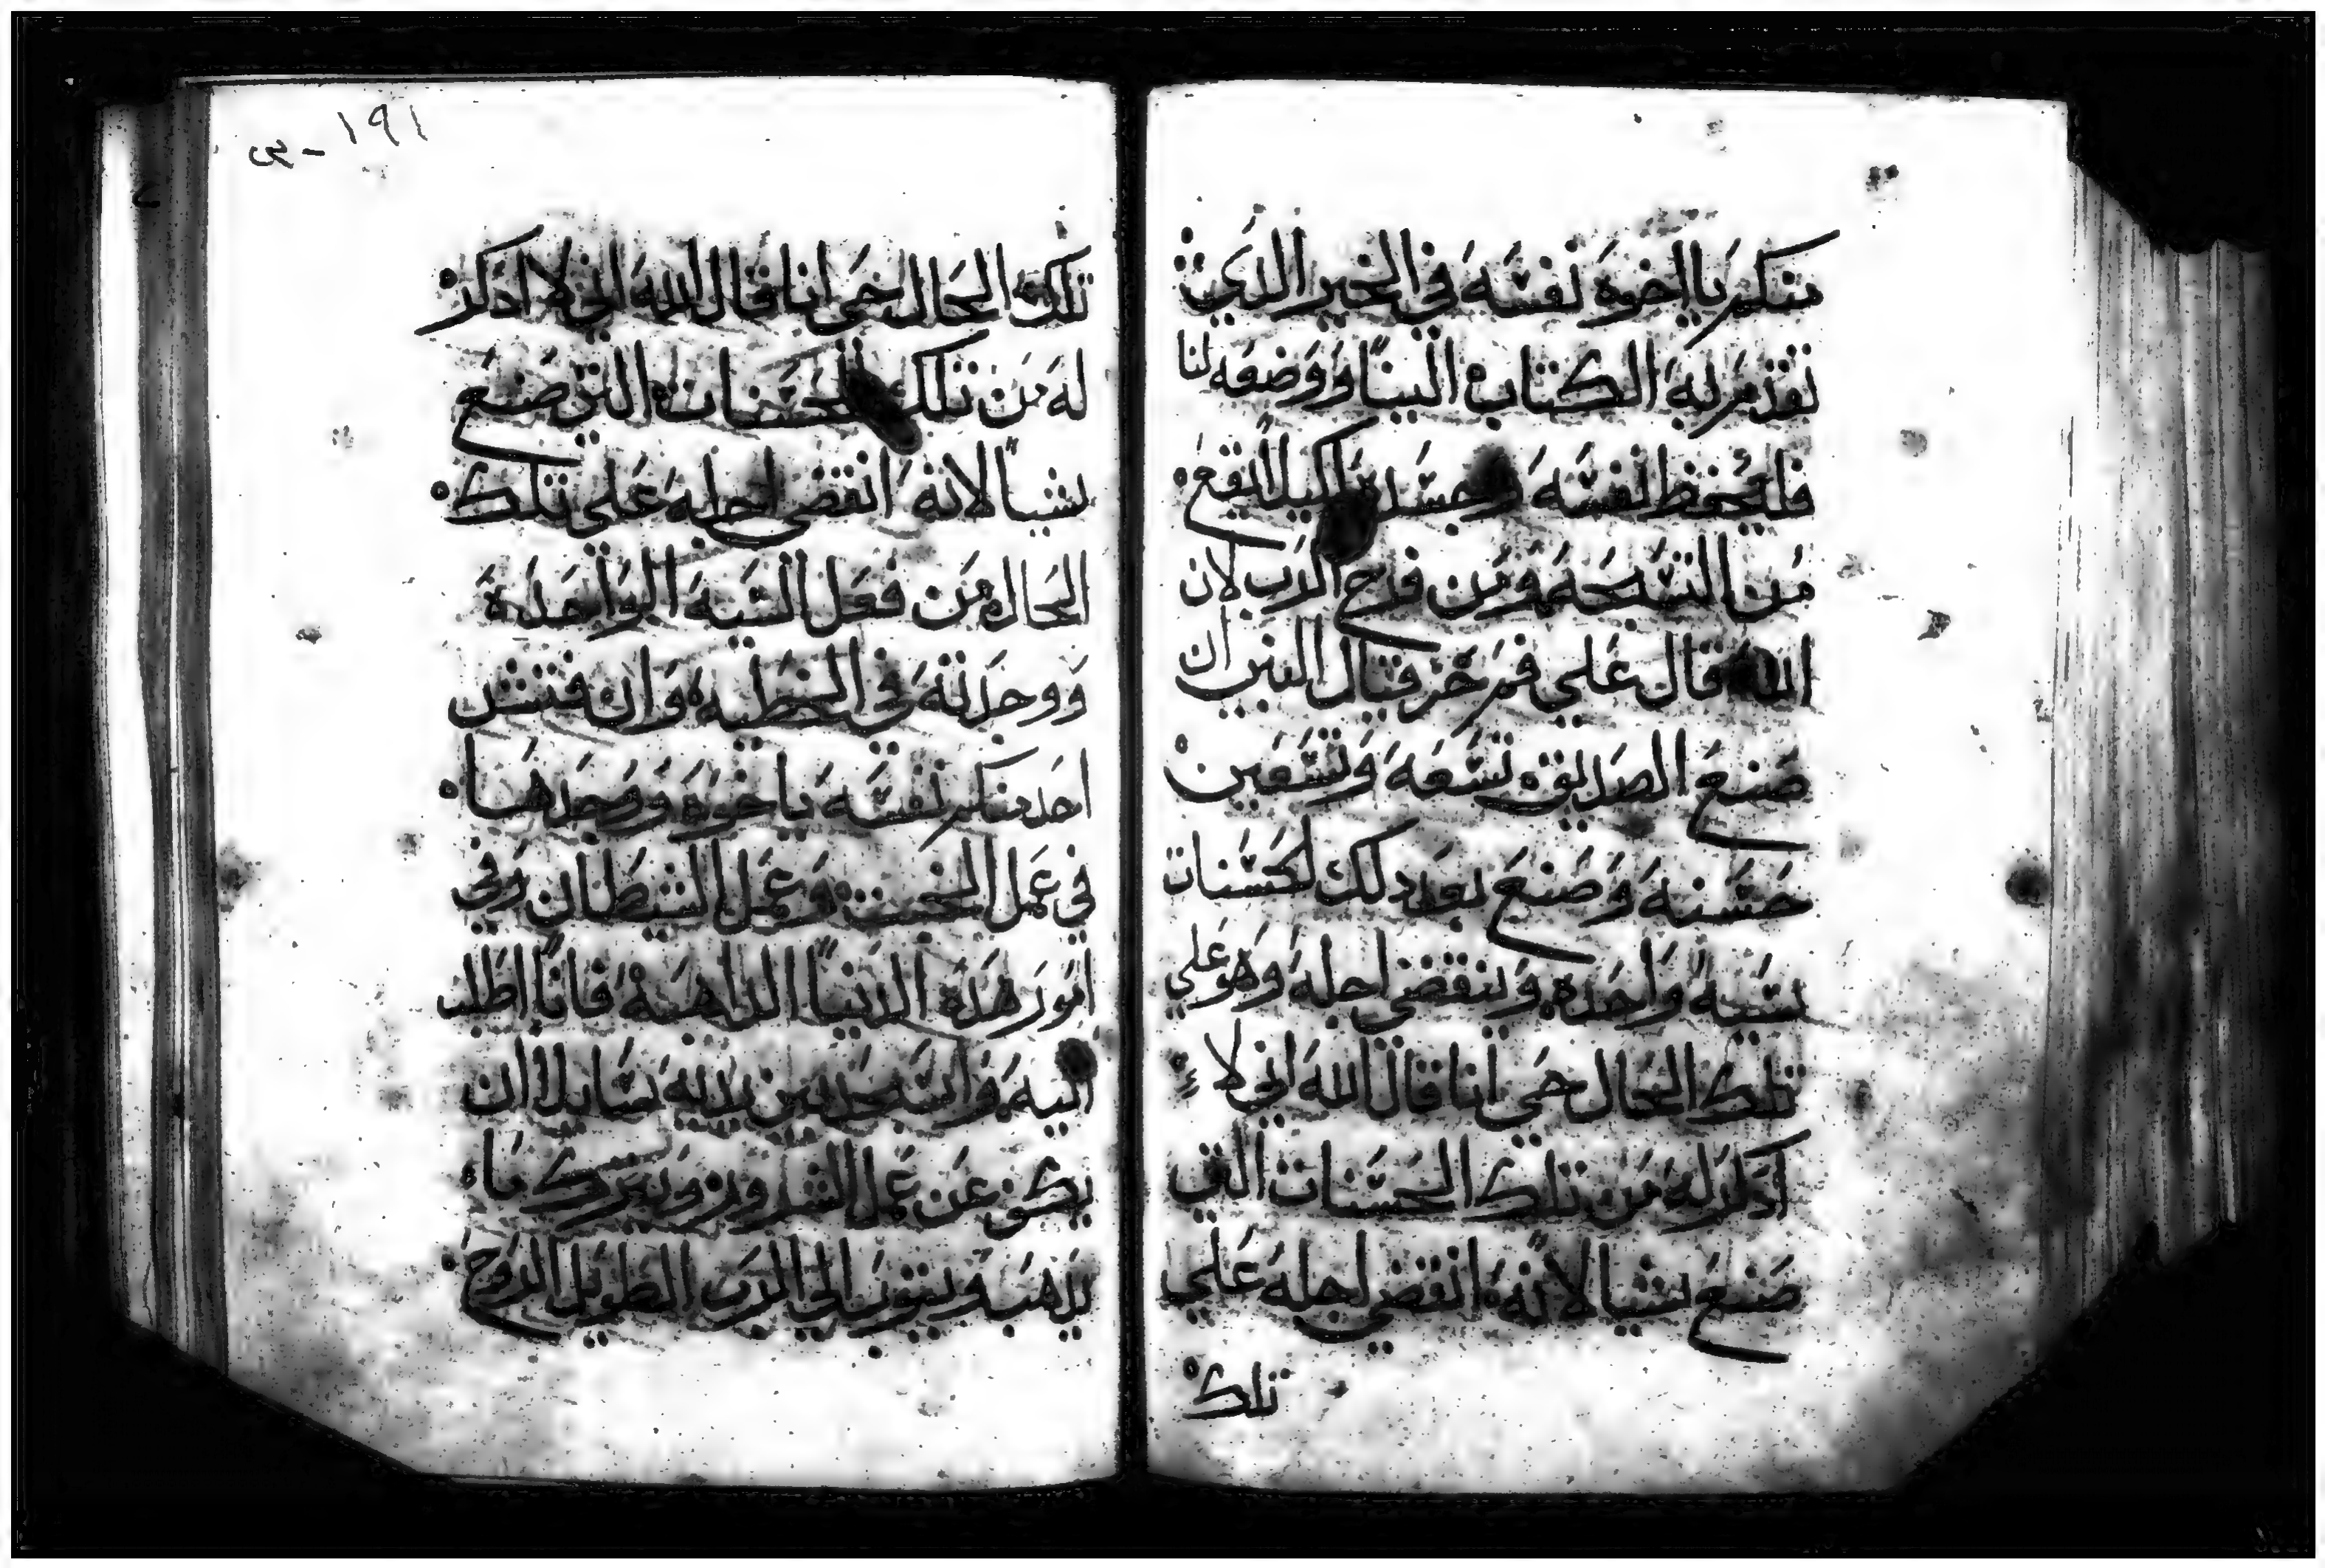 منكم يا اخوة نفسه في الخير الذي
تقدم به الكتاب الينا ووضعه لنا
فليحفظ نفسه وجسده كيلا يقع
من التسبحة ومن فرح الرب لان
الله قال علي فم حزقيال النبي ان
صنع الصديق تسعة وتسعين
حسنة وصنع بعد ذلك لحسنات
سية واحدة وينقضي اجله وهو علي
تلك الحال حي انا قال الله اني لا
اذكر له من تلك الحسنات التي
صنع شيا لانه انقضي اجله علي
تلك
١٩١
تلك الحال حي انا قال الله اني لا اذكر
له من تلك الحسنات التي صنع
شياً لانه انقضي اجله علي تلك
الحال من فعل السية الواحدة
ووجدته في الخطية وان فتش
احد منكم نفسه يا خوة ووجدها
في عمل الخبث وعمل الشيطان وفي
امور هذه الدنيا الذاهبة فانا اطلب
اليه واسجد بين يديه سايلا ان
يكف عن عمل الشرور ويترك ما
يذهب ويتوب الي الرب الطويل الروح